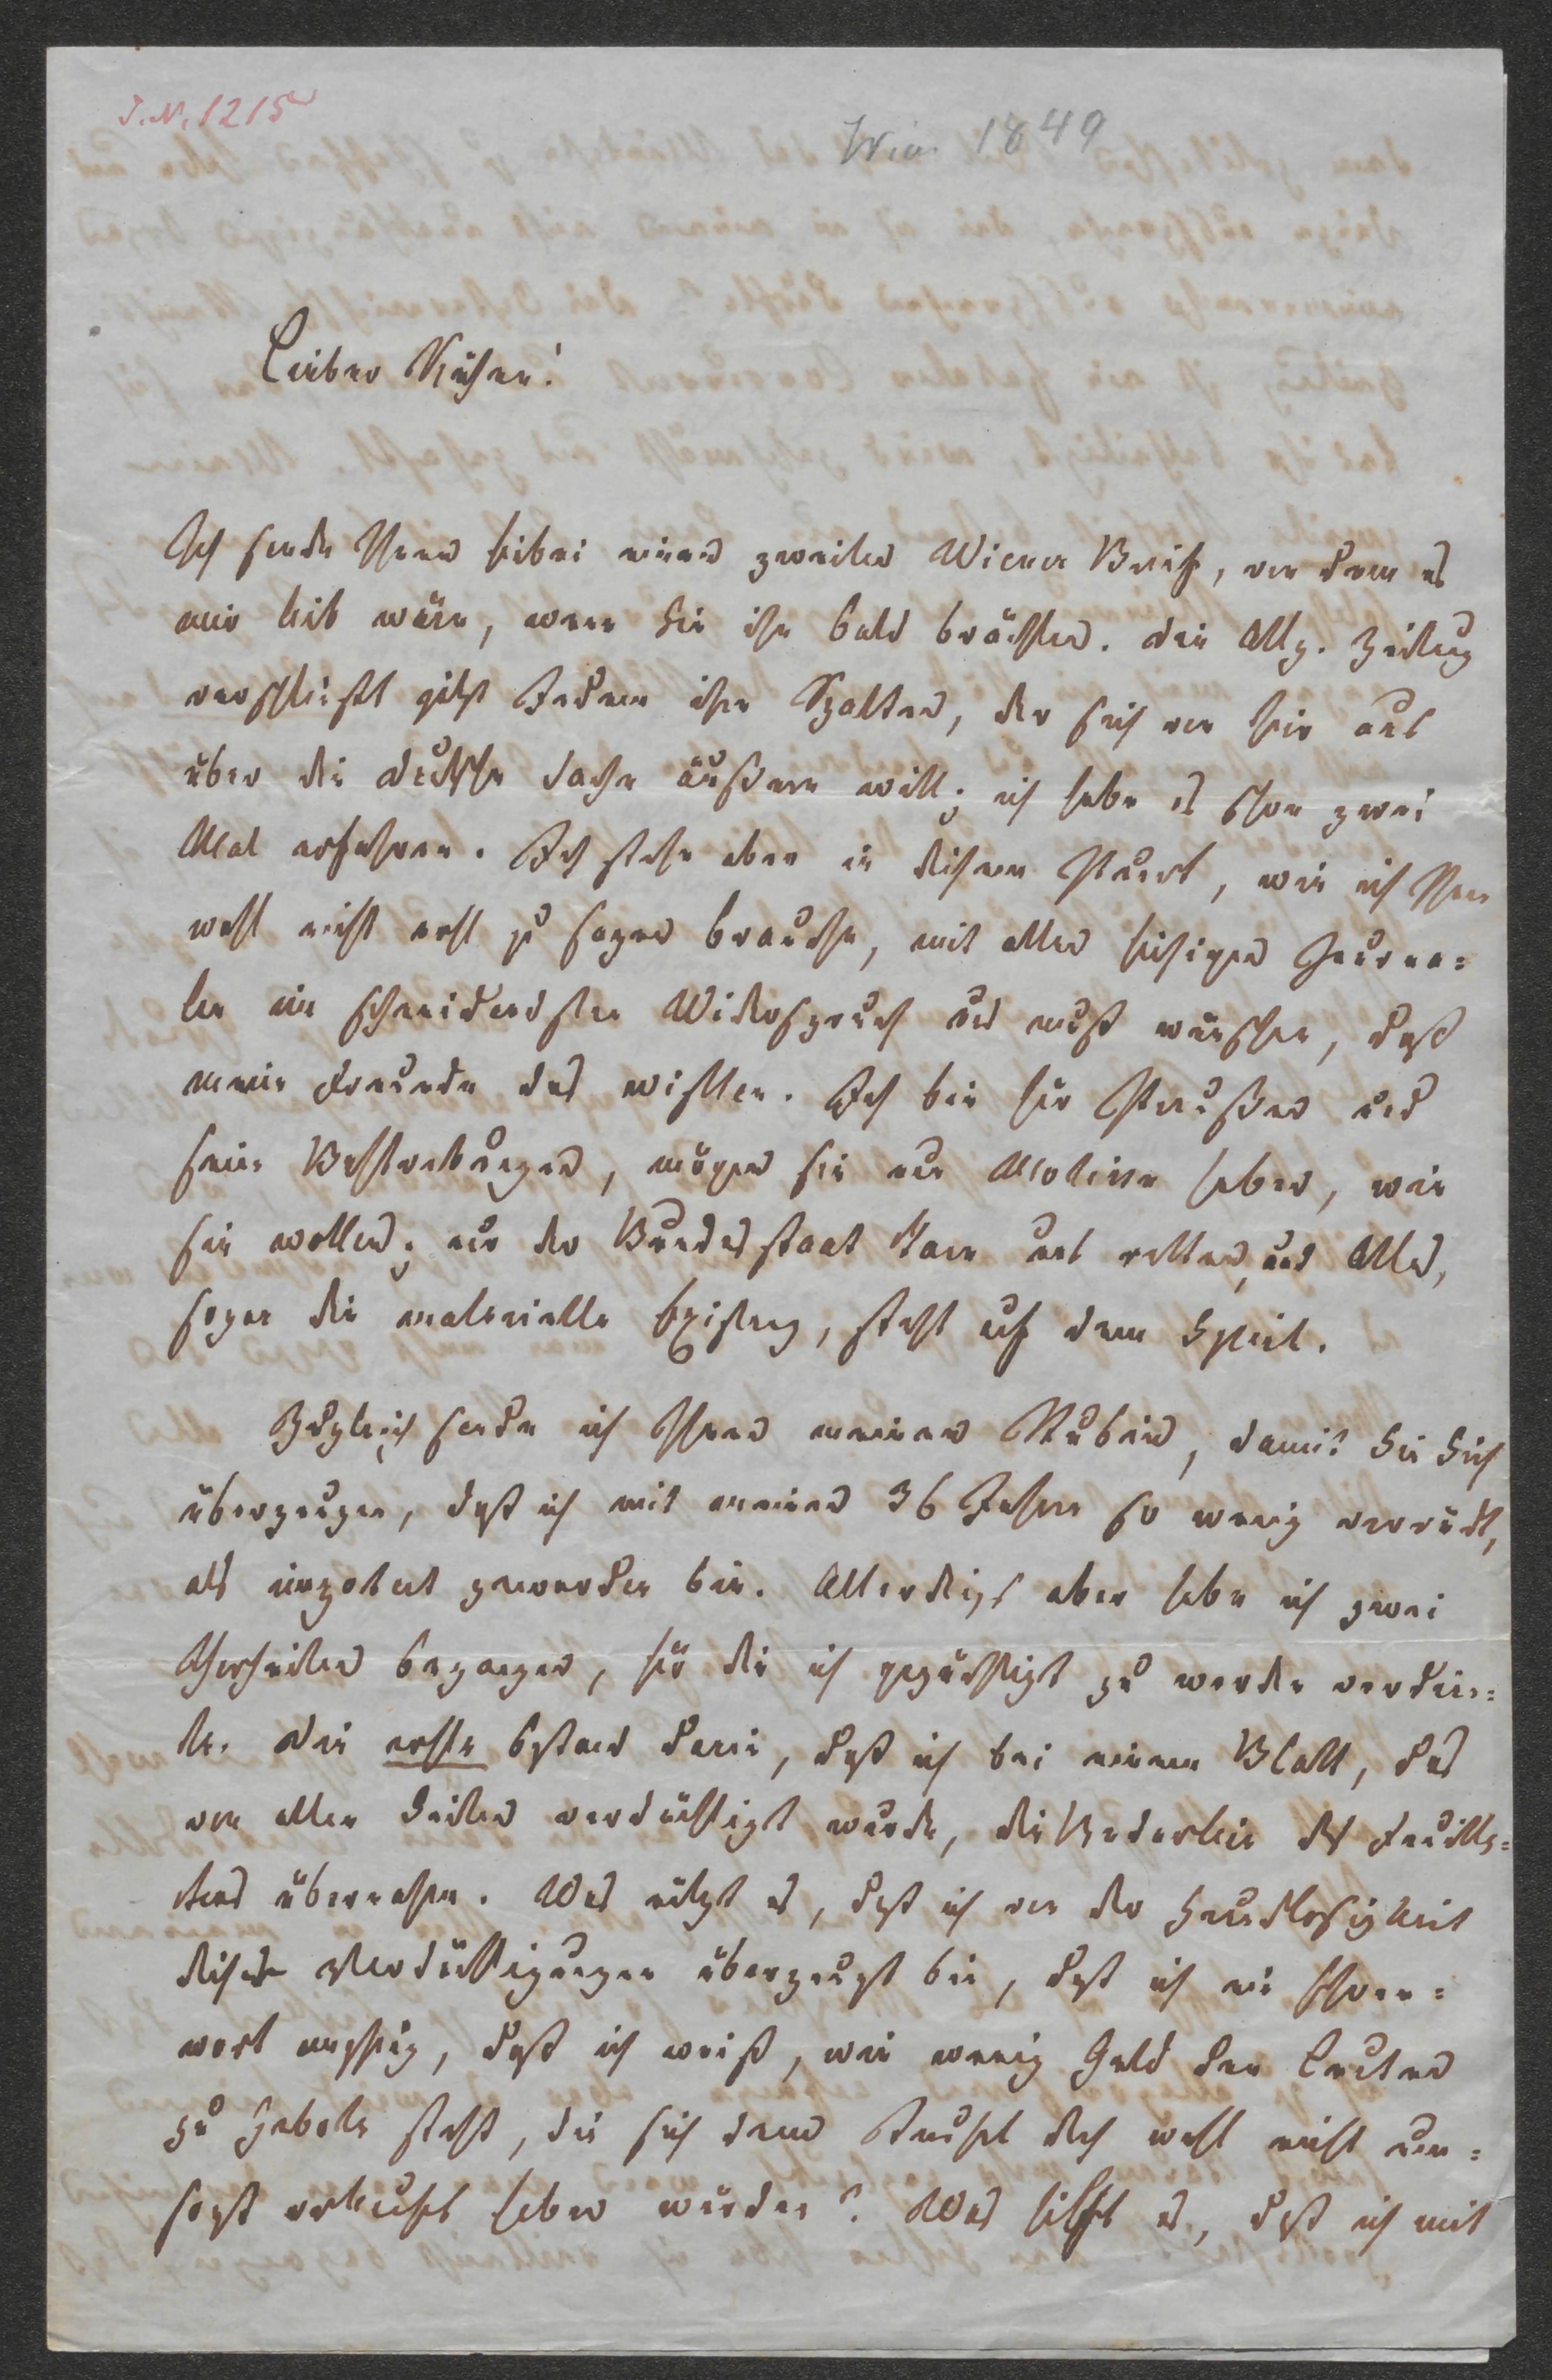 J. N. 1215
Wien 1849
Lieber Kühne!
Ich sende Ihnen hibei einen zweiten Wiener Brief, von dem es
mir lieb wäre, wenn Sie ihn bald brächten. Die Allg. Zeitung
verschließt jetzt Jedem ihre Spalten, der sich von hier aus
über die deutsche Sache äußern will; ich habe es schon zwei
Mal erfahren. Ich stehe aber in diesem Punct, wie ich Ihnen
wohl nicht erst zu sagen brauche, mit allen hiesigen Journa=
len im schneidendsten Widerspruch und muß wünschen, daß
meine Freunde das wissen. Ich bin für Preußen und
seine Bestrebungen, mögen sie nun Motive haben, wie
sie wollen; nur der Bundesstaat kann uns retten, und Alles,
sogar die materielle Existenz, steht auf dem Spiel.
Zugleich sende ich Ihnen meinen Rubin, damit Sie Sich
überzeugen, daß ich mit meinen 36 Jahren so wenig verrückt,
als impotent geworden bin. Allerdings aber habe ich zwei
Thorheiten begangen, für die ich gezüchtigt zu werden verdien=
te. Die erste bestand darin, daß ich bei einem Blatt, das
von allen Seiten verdächtigt wurde, die Redaction des Feuille=
tons übernahm. Was nützt es, daß ich von der Grundlosigkeit
dieser Verdächtigungen überzeugt bin, daß ich ein Ehren=
wort empfing, daß ich weiß, wie wenig Geld den Leuten
zu Gebote steht, die sich dem Teufel doch wohl nicht um=
sonst verkauft haben würden? Was hilft es, daß ich mit